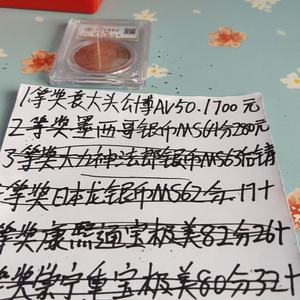 1等奖袁大头公博AV50.1700元
2等奖墨西哥银币MS61分280元
3等奖大力神法郎银币MS65
等奖日本龙银币MS62分.17十
等奖康熙通宝极美82分26十
等奖崇宁重宝极美80分32十